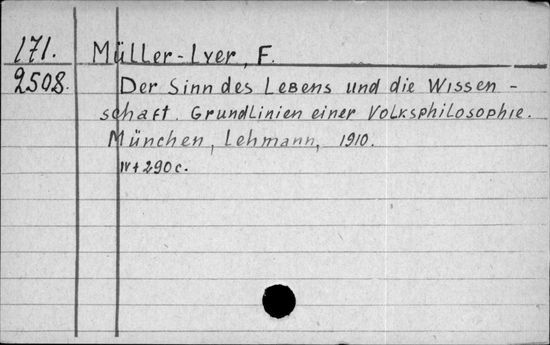 171. Müller-Lyer, F.
2508. Der Sinn des Lebens und die Wissen-
schaft. Grundlinien einer Volksphilosophie.
München, Lehmann, 1910.
IV + 290 c.